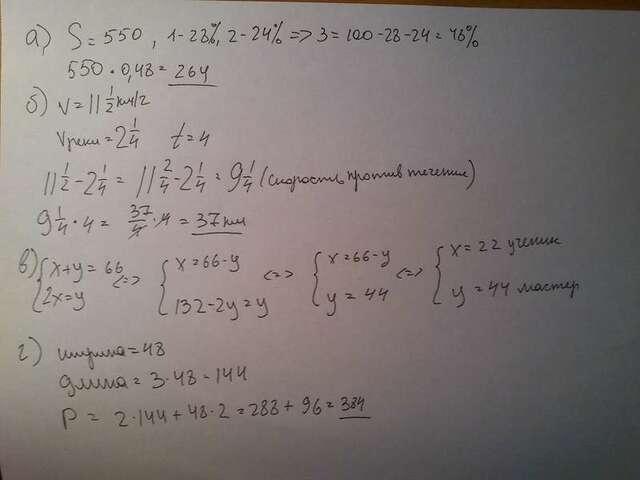 а) S = 550 , 1-28%, 2-24% => 3 = 100-28-24 = 48%
550 · 0,48 = 264
б) V = 11 1/2 км/г
Vреки = 2 1/4 t = 4
11 1/2 - 2 1/4 = 11 2/4 - 2 1/4 = 9 1/4 (скорость против течения)
9 1/4 · 4 = 37/4 · 4 = 37 км
в) { x+y = 66 <=> { x = 66-y <=> { x = 66-y <=> { x = 22 ученик
2x = y 132-2y = y y = 44 y = 44 мастер
г) ширина = 48
длина = 3·48 = 144
P = 2·144 + 48·2 = 288 + 96 = 384